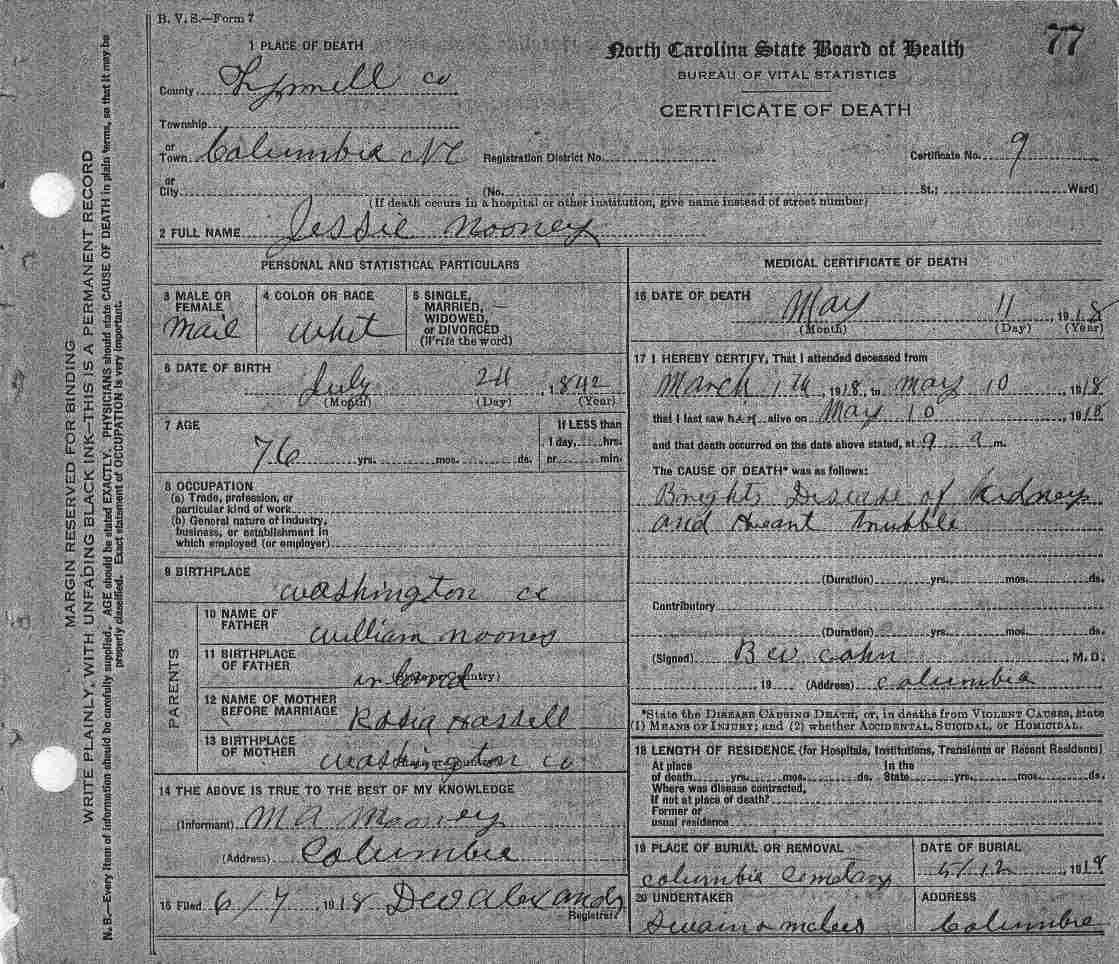 B. V. S.—Form 7
77
North Carolina State Board of Health
BUREAU OF VITAL STATISTICS
CERTIFICATE OF DEATH
1 PLACE OF DEATH
County Tyrrell co
Township
or
Town Columbia NC Registration District No. Certificate No. 9
or
City (No. St.; Ward)
(If death occurs in a hospital or other institution, give name instead of street number)
2 FULL NAME Jessie Mooney
PERSONAL AND STATISTICAL PARTICULARS
3 MALE OR
FEMALE
Mail
4 COLOR OR RACE
Whit
5 SINGLE,
MARRIED,
WIDOWED,
or DIVORCED
(Write the word)
6 DATE OF BIRTH
July 24, 1842
(Month) (Day) (Year)
7 AGE
76 yrs. mos. ds.
If LESS than
1 day, hrs.
or min.
8 OCCUPATION
(a) Trade, profession, or
particular kind of work
(b) General nature of industry,
business, or establishment in
which employed (or employer)
9 BIRTHPLACE
Washington co
PARENTS
10 NAME OF
FATHER
William Mooney
11 BIRTHPLACE
OF FATHER
(State or Country)
12 NAME OF MOTHER
BEFORE MARRIAGE
Hassell
13 BIRTHPLACE
OF MOTHER
Washington co
14 THE ABOVE IS TRUE TO THE BEST OF MY KNOWLEDGE
(Informant) M A Mooney
(Address) Columbia
15 Filed 6/7 1918
Registrar
MEDICAL CERTIFICATE OF DEATH
16 DATE OF DEATH
May 11, 1918
(Month) (Day) (Year)
17 I HEREBY CERTIFY, That I attended deceased from
March 1th, 1918, to May 10 1918
that I last saw h alive on May 10 1918
and that death occurred on the date above stated, at 9 a m.
The CAUSE OF DEATH* was as follows:
Brights Disease of Kidney
and Heart trubble
(Duration) yrs. mos. ds.
Contributory
(Duration) yrs. mos. ds.
(Signed) B W Cohn, M.D.
, 19 (Address) Columbia
*State the DISEASE CAUSING DEATH, or, in deaths from VIOLENT CAUSES, state
(1) MEANS OF INJURY; and (2) whether ACCIDENTAL, SUICIDAL, or HOMICIDAL.
18 LENGTH OF RESIDENCE (for Hospitals, Institutions, Transients or Recent Residents)
At place In the
of death yrs. mos. ds. State yrs. mos. ds.
Where was disease contracted,
If not at place of death?
Former or
usual residence
19 PLACE OF BURIAL OR REMOVAL
Columbia Cemetary
DATE OF BURIAL
5/12 1918
20 UNDERTAKER
Swain & McLees
ADDRESS
Columbia
MARGIN RESERVED FOR BINDING
WRITE PLAINLY, WITH UNFADING BLACK INK—THIS IS A PERMANENT RECORD
N. B.—Every item of information should be carefully supplied. AGE should be stated EXACTLY. PHYSICIANS should state CAUSE OF DEATH in plain terms, so that it may be
properly classified. Exact statement of OCCUPATION is very important.